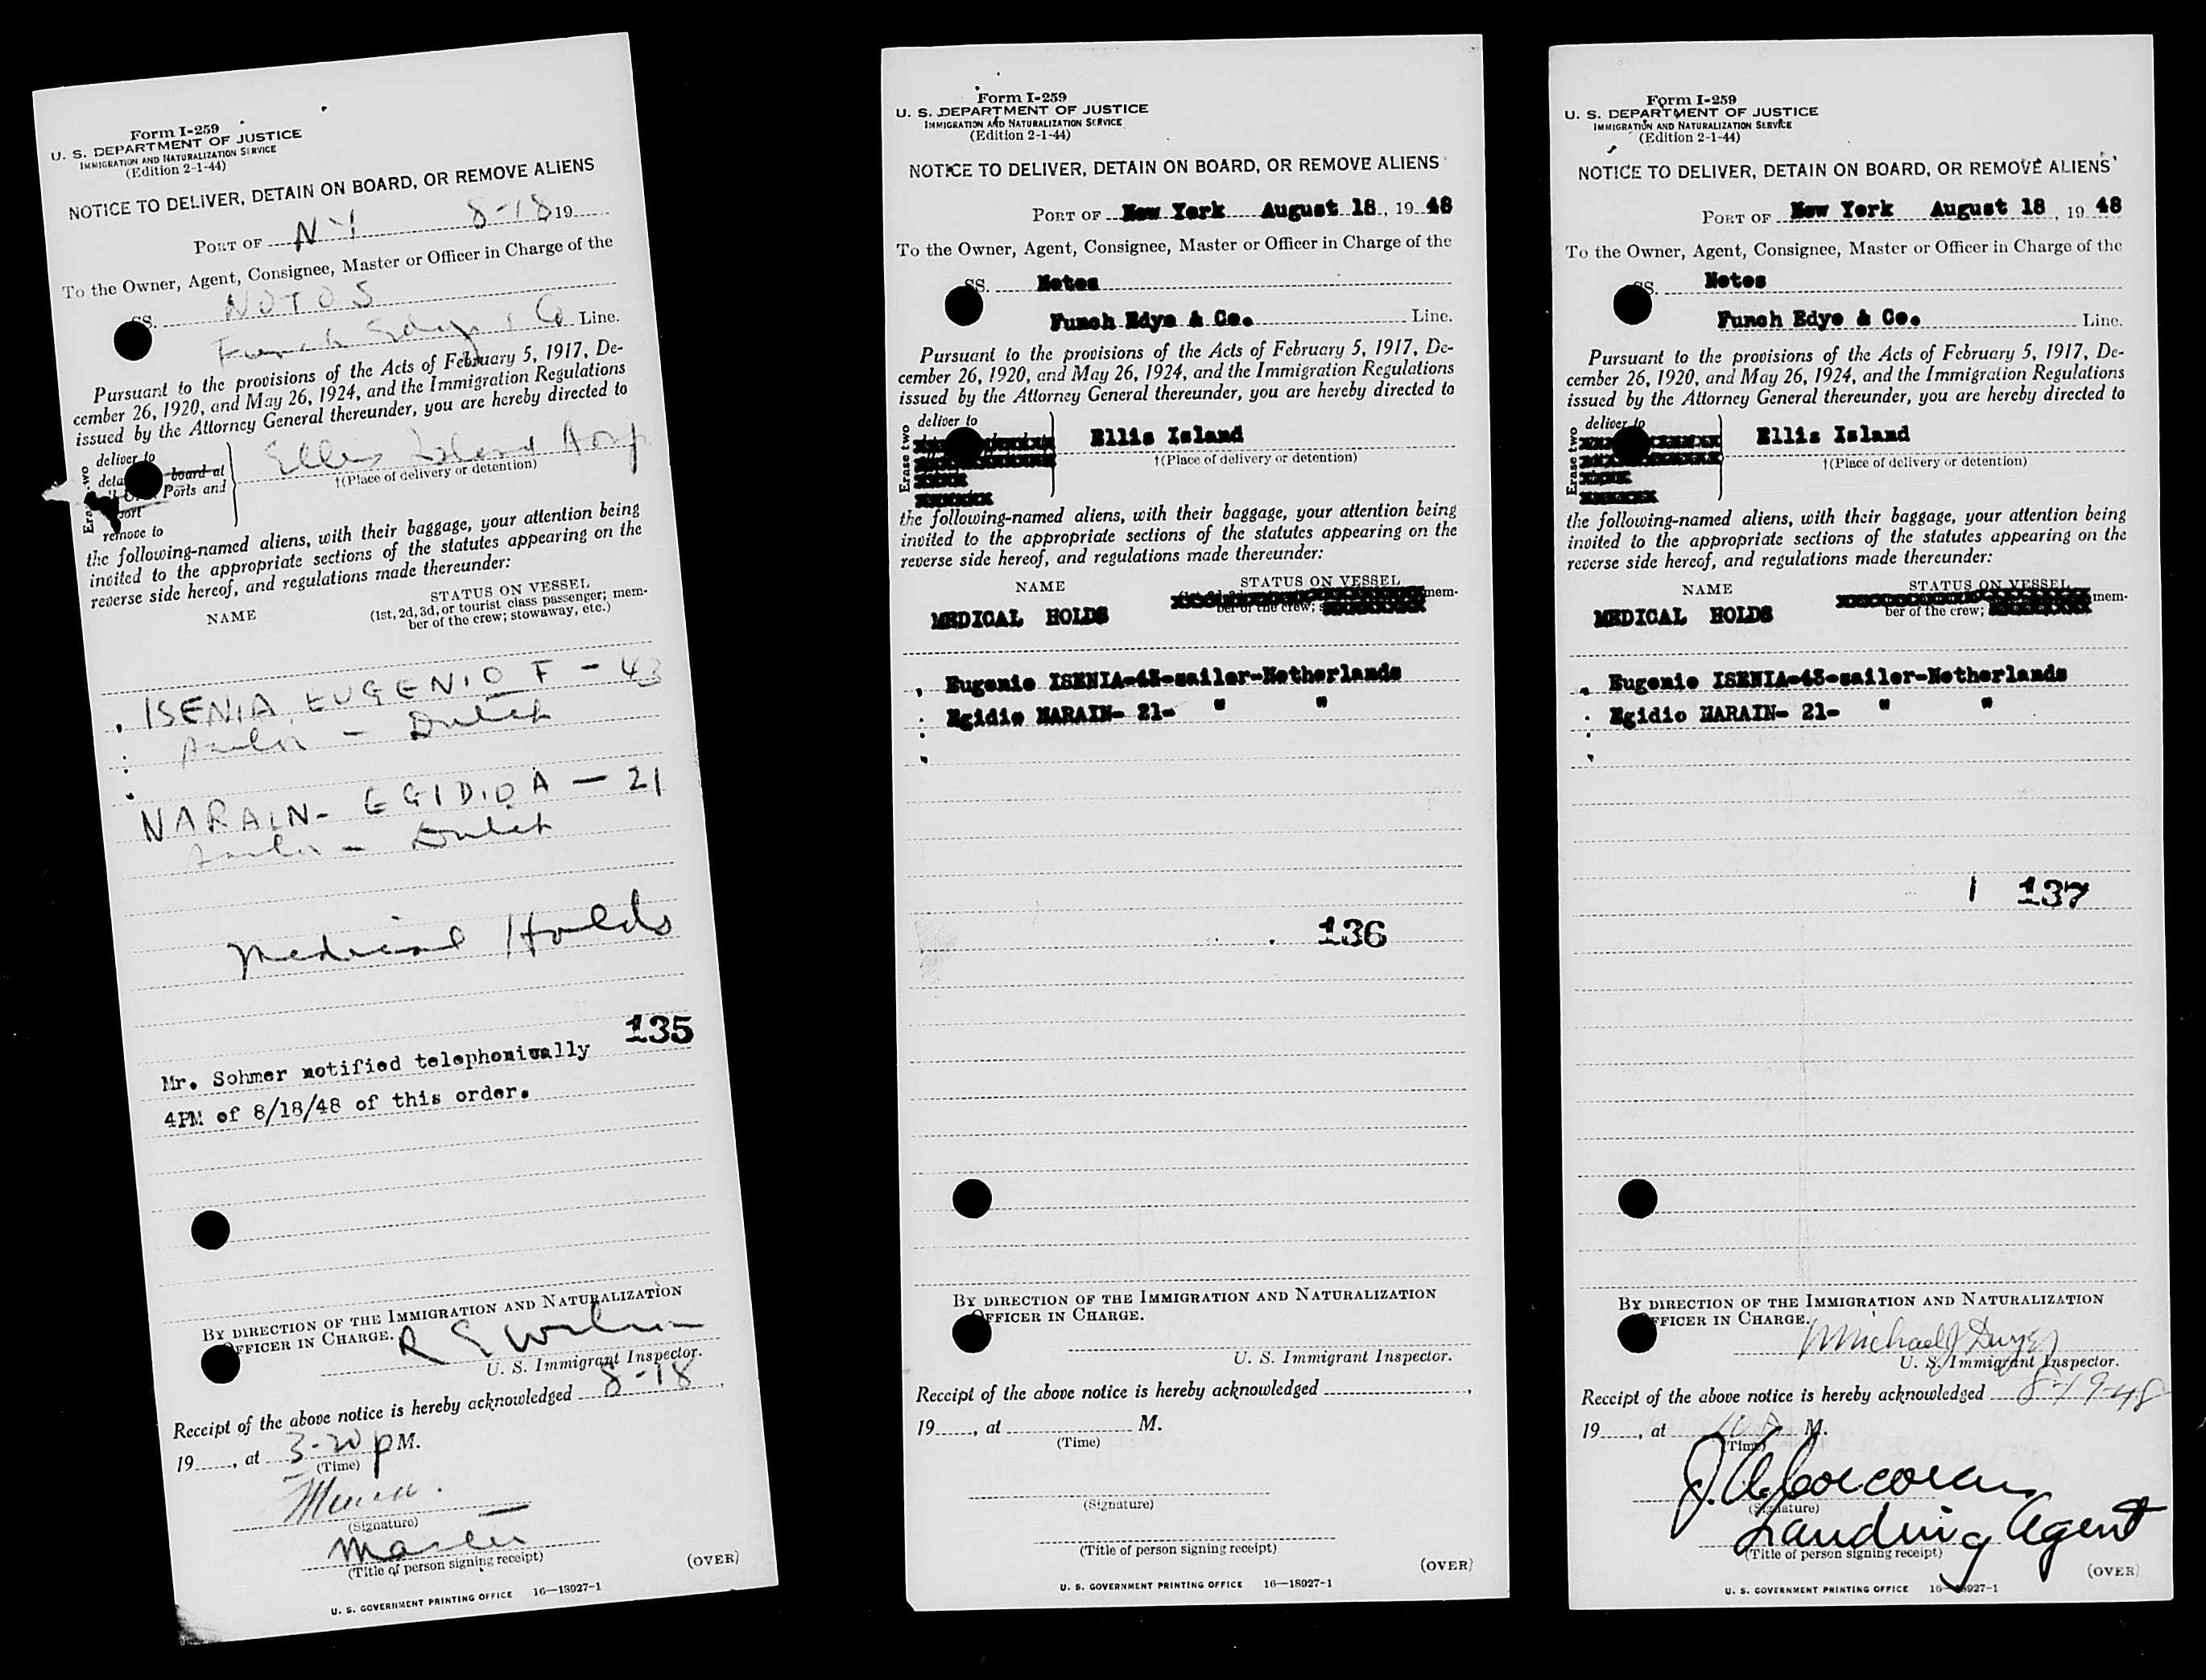 Form I-259
U. S. DEPARTMENT OF JUSTICE
IMMIGRATION AND NATURALIZATION SERVICE
(Edition 2-1-44)
NOTICE TO DELIVER, DETAIN ON BOARD, OR REMOVE ALIENS
PORT OF N Y 8-18 19
To the Owner, Agent, Consignee, Master or Officer in Charge of the
SS. NOTOS
Funch Edye & Co Line.
Pursuant to the provisions of the Acts of February 5, 1917, De-
cember 26, 1920, and May 26, 1924, and the Immigration Regulations
issued by the Attorney General thereunder, you are hereby directed to
deliver to
board at
Ports and
remove to
Ellis Island Hosp
†(Place of delivery or detention)
the following-named aliens, with their baggage, your attention being
invited to the appropriate sections of the statutes appearing on the
reverse side hereof, and regulations made thereunder:
NAME STATUS ON VESSEL
(1st, 2d, 3d, or tourist class passenger; mem-
ber of the crew; stowaway, etc.)
ISENIA, EUGENIO F - 43
sailor - Dutch
NARAIN - EGIDIO A - 21
sailor - Dutch
Medical Holds
135
Mr. Sohmer notified telephonically
4PM of 8/18/48 of this order.
BY DIRECTION OF THE IMMIGRATION AND NATURALIZATION
OFFICER IN CHARGE.
R E Wilson
U. S. Immigrant Inspector.
Receipt of the above notice is hereby acknowledged 8-18,
19, at 3-20 p M.
(Time)
(Signature)
Master
(Title of person signing receipt)
(OVER)
U. S. GOVERNMENT PRINTING OFFICE 16—18927-1
Form I-259
U. S. DEPARTMENT OF JUSTICE
IMMIGRATION AND NATURALIZATION SERVICE
(Edition 2-1-44)
NOTICE TO DELIVER, DETAIN ON BOARD, OR REMOVE ALIENS
PORT OF New York August 18, 19 48
To the Owner, Agent, Consignee, Master or Officer in Charge of the
SS. Notos
Funch Edye & Co. Line.
Pursuant to the provisions of the Acts of February 5, 1917, De-
cember 26, 1920, and May 26, 1924, and the Immigration Regulations
issued by the Attorney General thereunder, you are hereby directed to
Erase two
deliver to
Ellis Island
†(Place of delivery or detention)
the following-named aliens, with their baggage, your attention being
invited to the appropriate sections of the statutes appearing on the
reverse side hereof, and regulations made thereunder:
NAME STATUS ON VESSEL
mem-
ber of the crew;
MEDICAL HOLDS
Eugenio ISENIA-43-sailor-Netherlands
Egidio NARAIN- 21- " "
136
BY DIRECTION OF THE IMMIGRATION AND NATURALIZATION
OFFICER IN CHARGE.
U. S. Immigrant Inspector.
Receipt of the above notice is hereby acknowledged ,
19, at M.
(Time)
(Signature)
(Title of person signing receipt)
(OVER)
U. S. GOVERNMENT PRINTING OFFICE 16—18927-1
Form I-259
U. S. DEPARTMENT OF JUSTICE
IMMIGRATION AND NATURALIZATION SERVICE
(Edition 2-1-44)
NOTICE TO DELIVER, DETAIN ON BOARD, OR REMOVE ALIENS
PORT OF New York August 18, 19 48
To the Owner, Agent, Consignee, Master or Officer in Charge of the
SS. Notos
Funch Edye & Co. Line.
Pursuant to the provisions of the Acts of February 5, 1917, De-
cember 26, 1920, and May 26, 1924, and the Immigration Regulations
issued by the Attorney General thereunder, you are hereby directed to
Erase two
deliver to
Ellis Island
†(Place of delivery or detention)
the following-named aliens, with their baggage, your attention being
invited to the appropriate sections of the statutes appearing on the
reverse side hereof, and regulations made thereunder:
NAME STATUS ON VESSEL
mem-
ber of the crew;
MEDICAL HOLDS
Eugenio ISENIA-43-sailor-Netherlands
Egidio NARAIN- 21- " "
137
BY DIRECTION OF THE IMMIGRATION AND NATURALIZATION
OFFICER IN CHARGE.
Michael J Dwyer
U. S. Immigrant Inspector.
Receipt of the above notice is hereby acknowledged 8-19-48
19, at M.
(Time)
J. A. Corcoran
(Signature)
Landing Agent
(Title of person signing receipt)
(OVER)
U. S. GOVERNMENT PRINTING OFFICE 16—18927-1